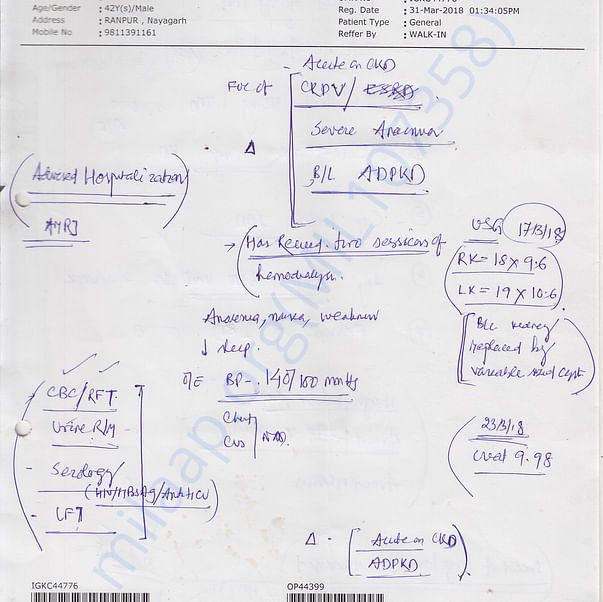 Age/Gender : 42Y(s)/Male
Address : RANPUR , Nayagarh
Mobile No : 9811391161
Reg. Date : 31-Mar-2018 01:34:05PM
Patient Type : General
Reffer By : WALK-IN
- Acute on CKD
CKD V/
Severe Anaemia
Δ
B/L ADPKD
Advised Hospitalization
→ Has two sessions of
hemodialysis.
USG 17/3/18
RK = 18 x 9.6
LK = 19 x 10.6
kidney
replaced by
variable sized cyst
weakness
↓ sleep
O/E BP - 140/100 mmHg
Chest
CVS NAD
CBC/RFT
Urine R/M
- Serology
(HIV/HBsAg/AntiHCV)
- LFT
23/3/18
creat 9.98
Δ - Acute on CKD
ADPKD
IGKC44776
OP44399
milaap.org(MIL107358)